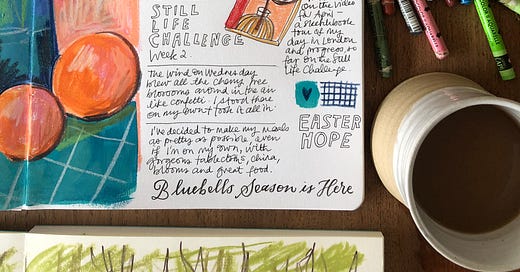 STILL
LIFE
CHALLENGE
Week 2.
The wind on Wednesday
blew all the cherry tree
blossoms around in the air
like confetti. I stood there
on my own & took it all in.
I've decided to make my meals
as pretty as possible, even
if I'm on my own, with
gorgeous tablecloths, china,
blooms and great food.
on the video
for April –
a sketchbook
tour of my
day in London
and progress so
far on the Still
Life Challenge
EASTER
HOPE
Bluebells Season is Here